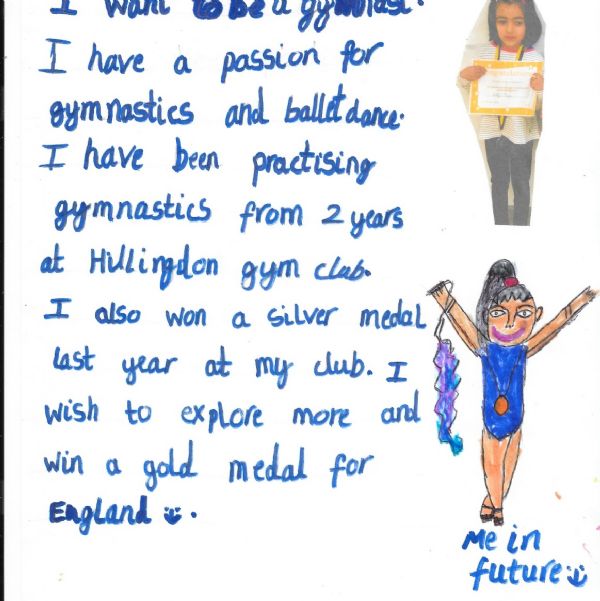 I want to be a gymnast.
I have a passion for
gymnastics and ballet dance.
I have been practising
gymnastics from 2 years
at Hillingdon gym club.
I also won a silver medal
last year at my club. I
wish to explore more and
win a gold medal for
England.
Me in
future